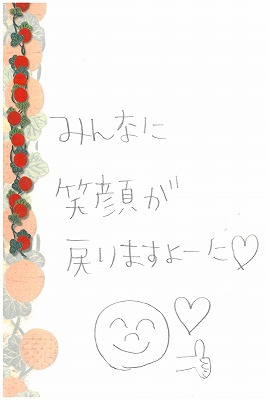 みんなに
笑顔が
戻りますよーに♡